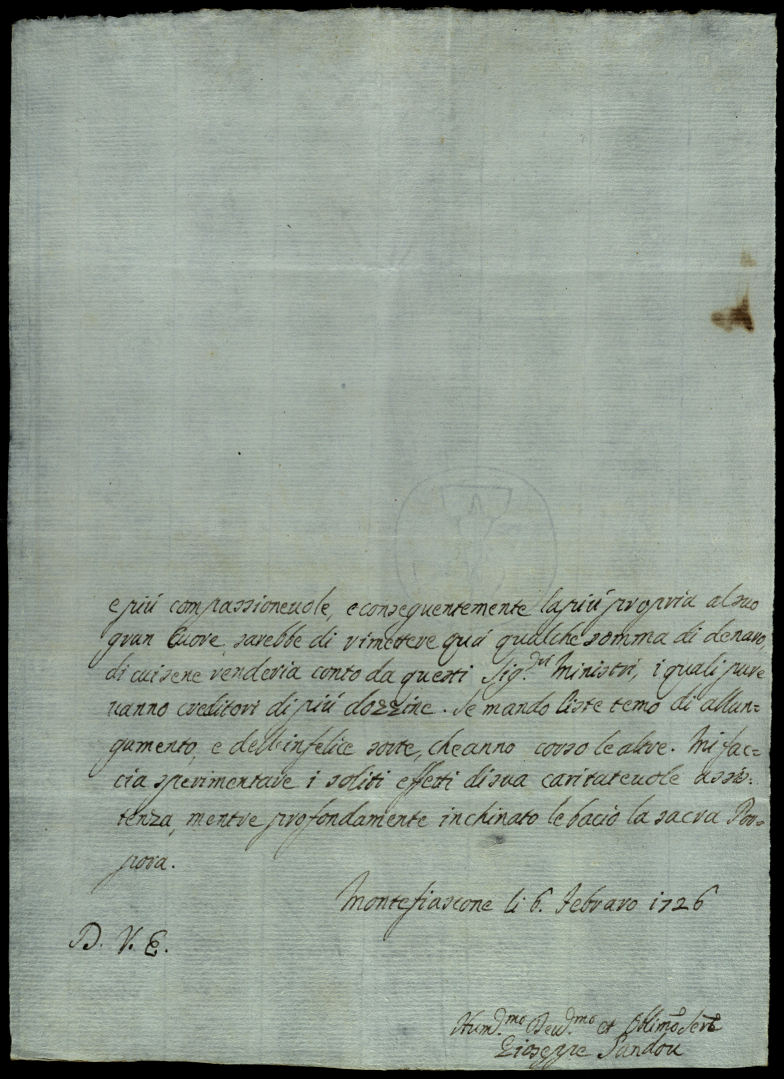 e più compassioneuole, e conseguentemente la più propria al suo
gran Cuore sarebbe di rimettere quà qualche somma di denaro,
di cui sene renderia conto da questi Sig.ri Ministri, i quali pure
uanno creditori di più dozzine. Se mando liste temo di allun=
gamento, e dell'infelice sorte, che anno corso le altre. Mi fac=
cia sperimentare i soliti effetti di sua caritateuole assis=
tenza, mentre profondamente inchinato le bacio la sacra Por=
pora.
Montefiascone li 6. Febraro 1726
D. V. E.
Hum.mo Deu.mo et Oblimo Serre
Gioseppe